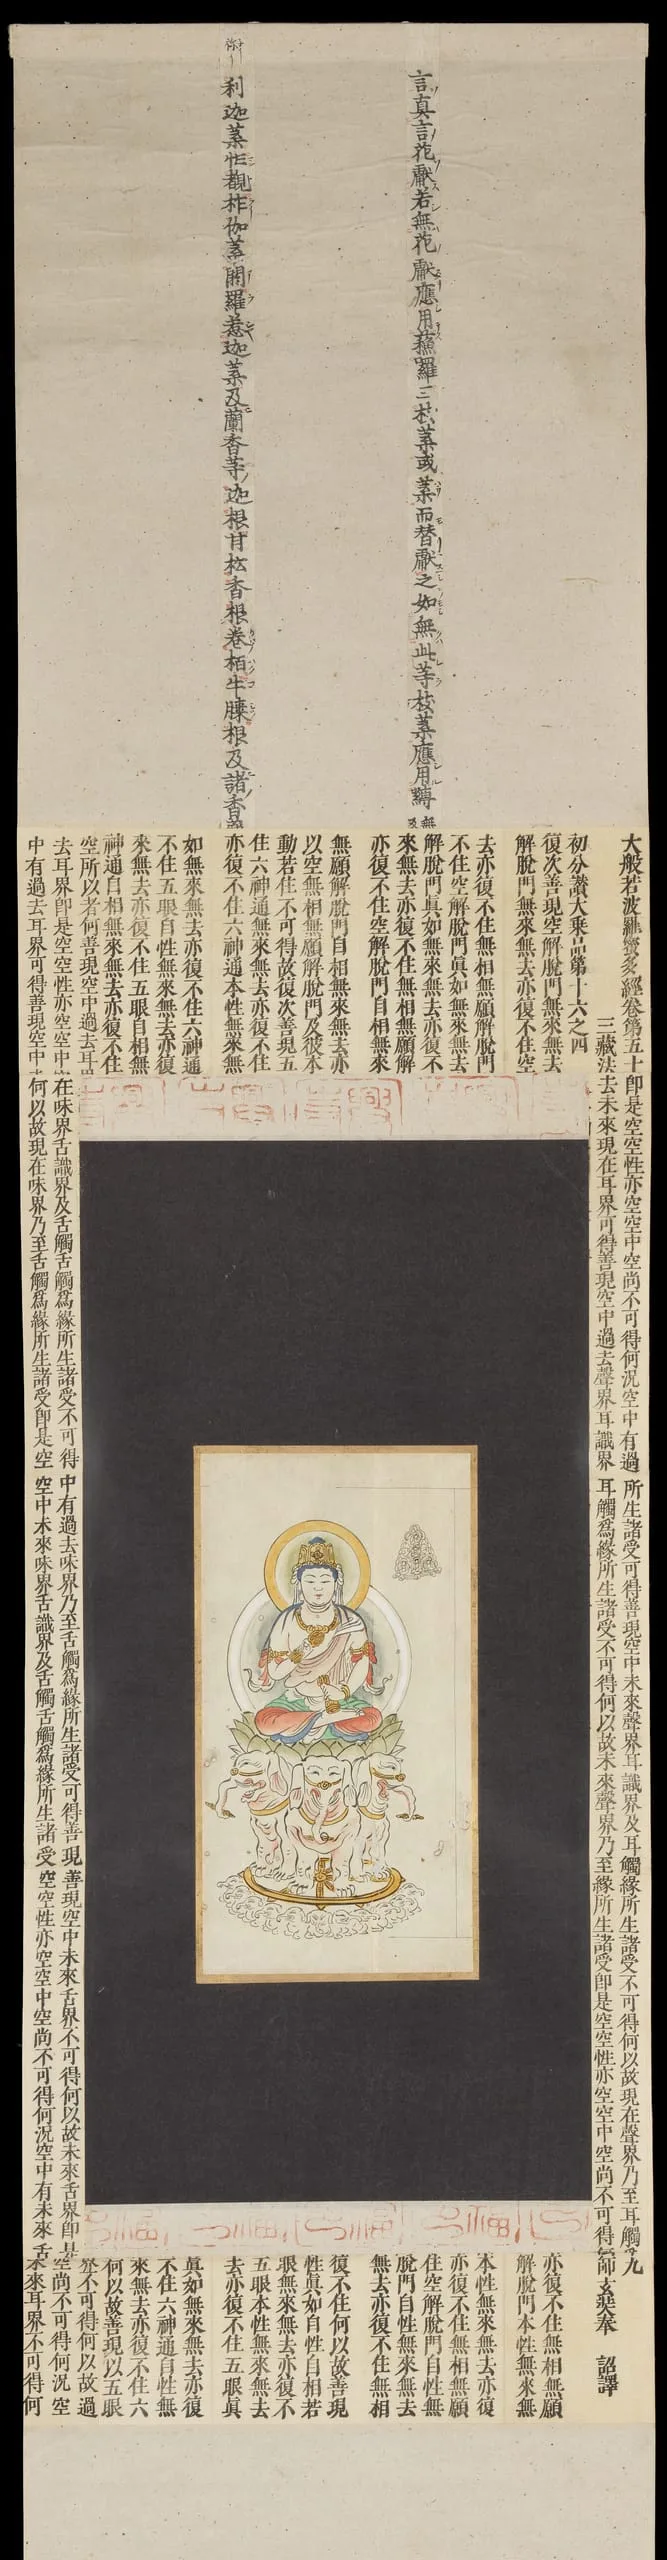 言真言花獻若無花獻應用蘓羅三枝葉或葉而替獻之如無此等枝葉應用
利迦葉
迦葉及蘭香等迦根甘松香根卷栢牛膝根及諸香
大般若波羅蜜多經卷第五十
三藏法
初分讚大乗品第十六之四
復次善現空解脫門無來無去
解脫門無來無去亦復不住空
去亦復不住無相無願解脫門
不住空解脫門真如無來無去
解脫門真如無來無去亦復不
來無去亦復不住無相無願解
亦復不住空解脫門自相無來
無願解脫門自相無來無去亦
以空無相無願解脫門及彼本
動若住不可得故復次善現五
住六神通無來無去亦復不住
亦復不住六神通本性無來無
如無來無去亦復不住六神通
不住五眼自性無來無去亦復
來無去亦復不住五眼自相無
神通自相無來無去亦復不住
空所以者何善現空中過去耳界
去耳界即是空空性亦空空中空
中有過去耳界可得善現空中未
即是空空性亦空空中空尚不可得何況空中有過
去未來現在耳界可得善現空中過去聲界耳識界
所生諸受可得善現空中未來聲界耳識界及耳觸緣所生諸受不可得何以故現在聲界乃至耳觸
耳觸爲緣所生諸受不可得何以故未來聲界乃至緣所生諸受即是空空性亦空空中空尚不可得
九
師玄奘奉 詔譯
在味界舌識界及舌觸舌觸爲緣所生諸受不可得
何以故現在味界乃至舌觸爲緣所生諸受即是空
中有過去味界乃至舌觸爲緣所生諸受可得善現
空中未來味界舌識界及舌觸舌觸爲緣所生諸受
善現空中未來舌界不可得何以故未來舌界即是
空空性亦空空中空尚不可得何況空中有未來舌
亦復不住無相無願
解脫門本性無來無
本性無來無去亦復
亦復不住無相無願
住空解脫門自性無
脫門自性無來無去
無去亦復不住無相
復不住何以故善現
性真如自性自相若
眼無來無去亦復不
五眼本性無來無去
去亦復不住五眼真
真如無來無去亦復
不住六神通自性無
來無去亦復不住六
何以故善現以五眼
界不可得何以故過
空尚不可得何況空
未來耳界不可得何